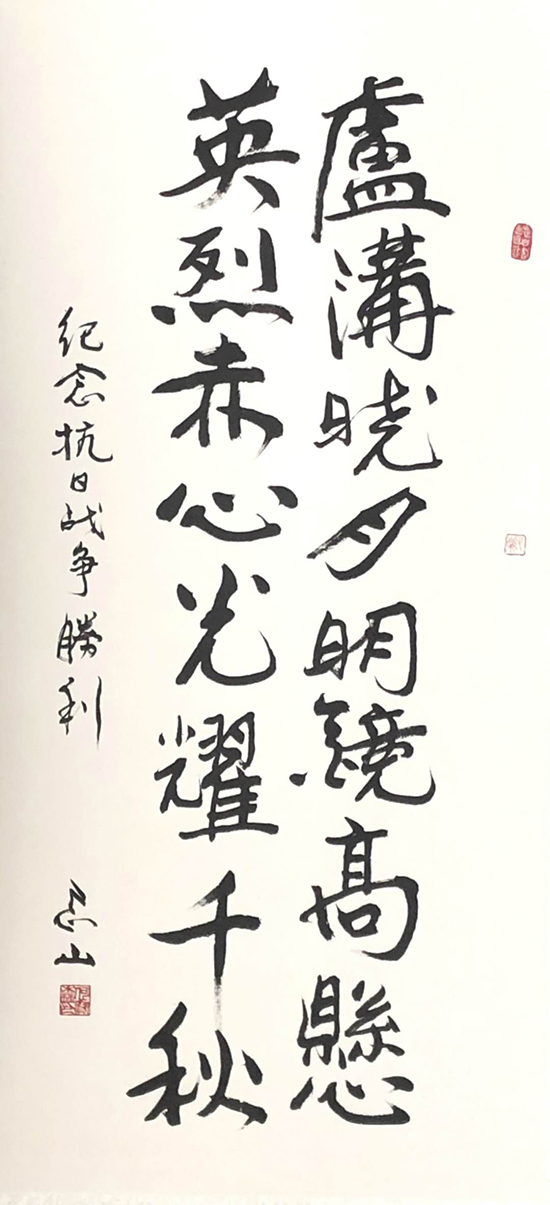 盧溝晓月明鏡高懸
英烈赤心光耀千秋
纪念抗日战争勝利
山